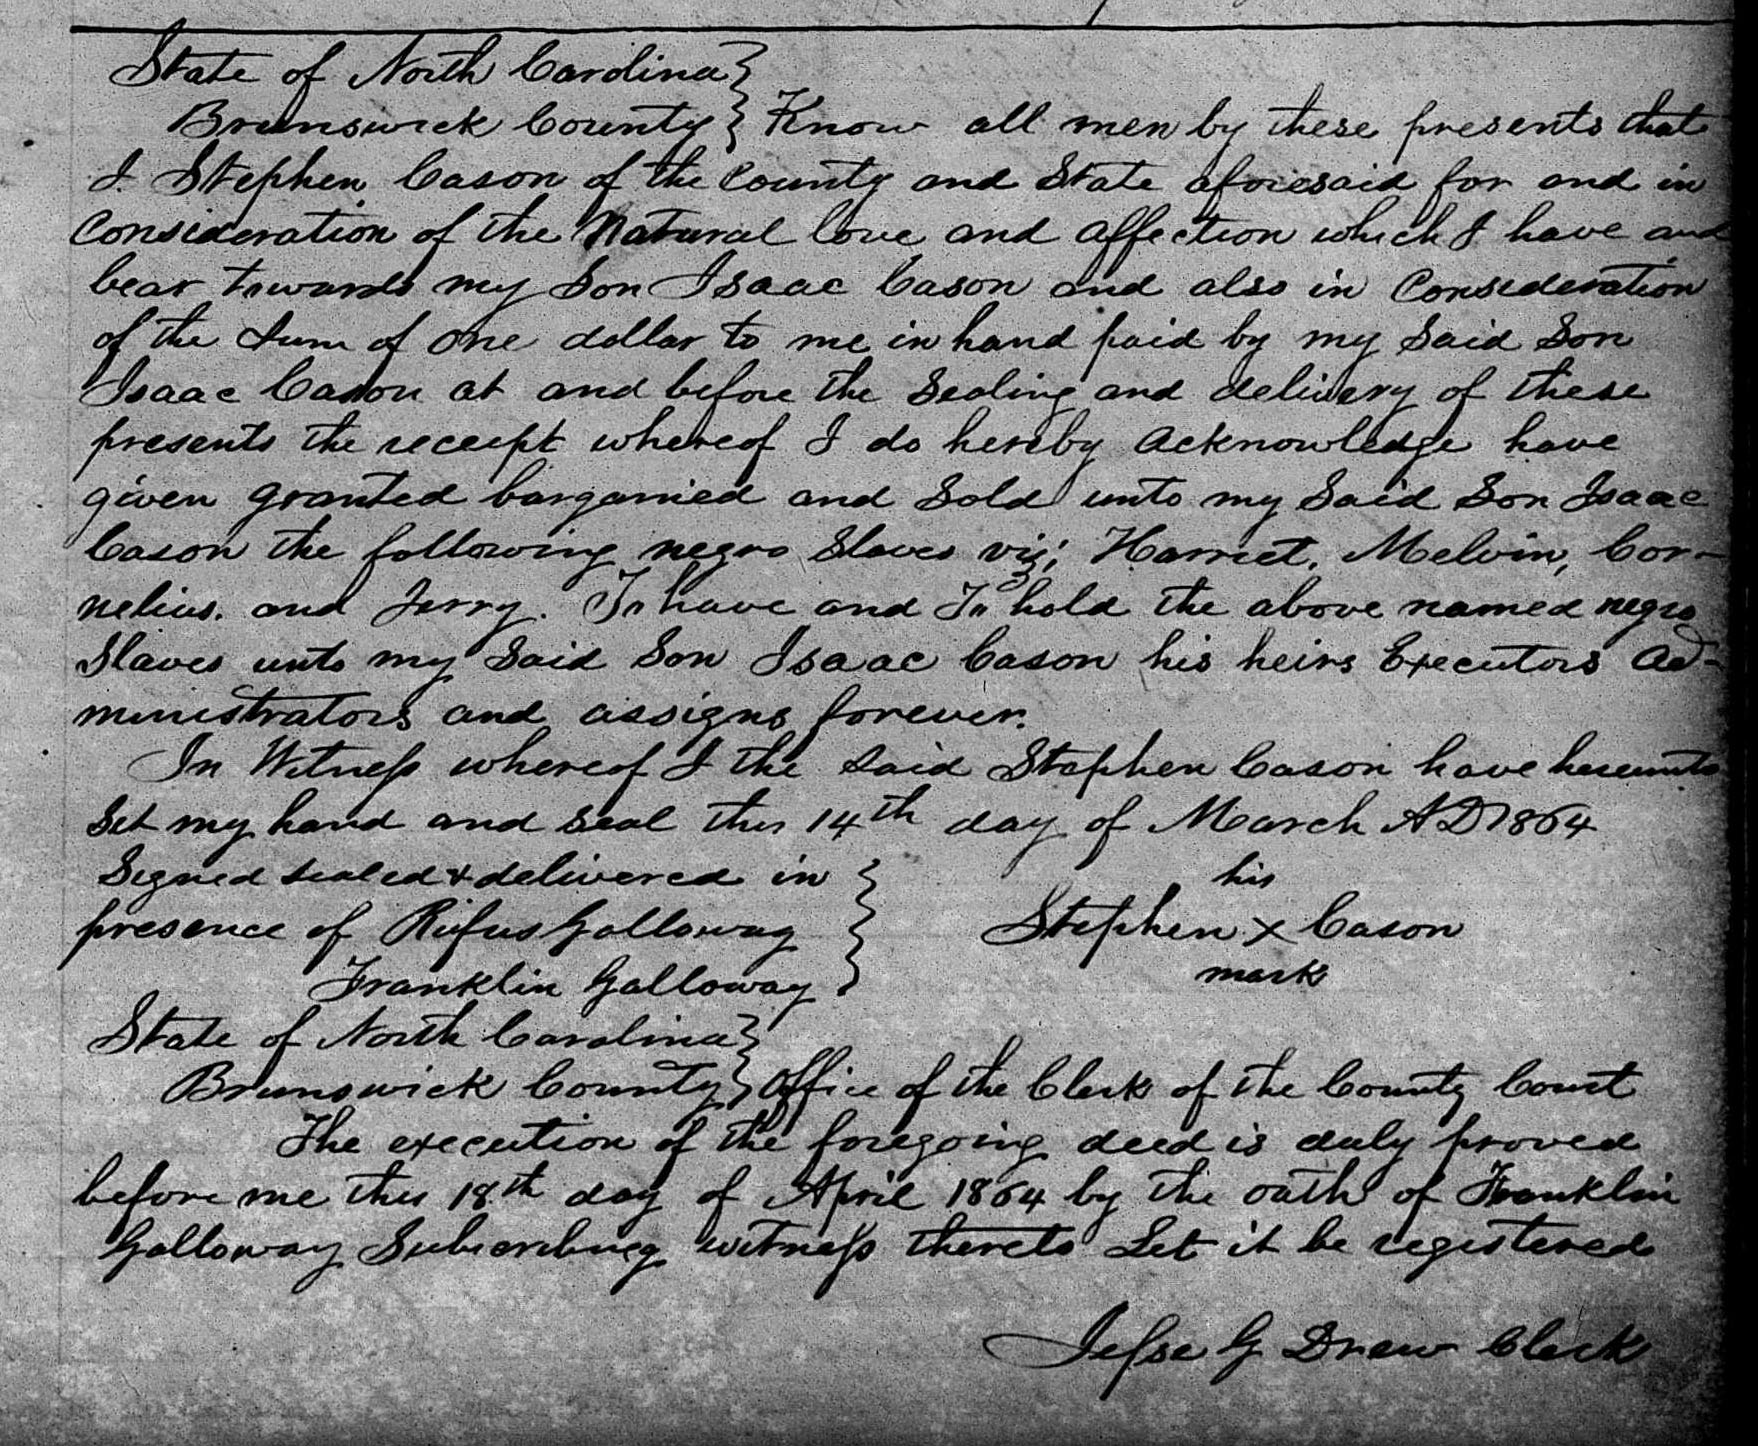 State of North Carolina }
Brunswick County } Know all men by these presents that
I. Stephen Cason of the County and State aforesaid for and in
Consideration of the Natural love and affection which I have and
bear towards my Son Isaac Cason and also in Consideration
of the Sum of One dollar to me in hand paid by my Said Son
Isaac Cason at and before the Sealing and delivery of these
presents the receipt whereof I do hereby acknowledge have
given granted bargained and Sold unto my Said Son Isaac
Cason the following negro Slaves viz; Harriet, Melvin, Cor-
nelius. and Jerry. To have and To hold the above named negro
Slaves unto my Said Son Isaac Cason his heirs Executors Ad-
ministrators and assigns forever.
In Witness whereof I the Said Stephen Cason have hereunto
Set my hand and Seal this 14th day of March AD 1864
Signed Sealed & delivered in } his
presence of Rufus Galloway } Stephen x Cason
Franklin Galloway } mark
State of North Carolina }
Brunswick County } Office of the Clerk of the County Court
The execution of the foregoing deed is duly proved
before me this 18th day of April 1864 by the oath of Franklin
Galloway Subscribing witness thereto Let it be registered
Jesse G Drew Clerk